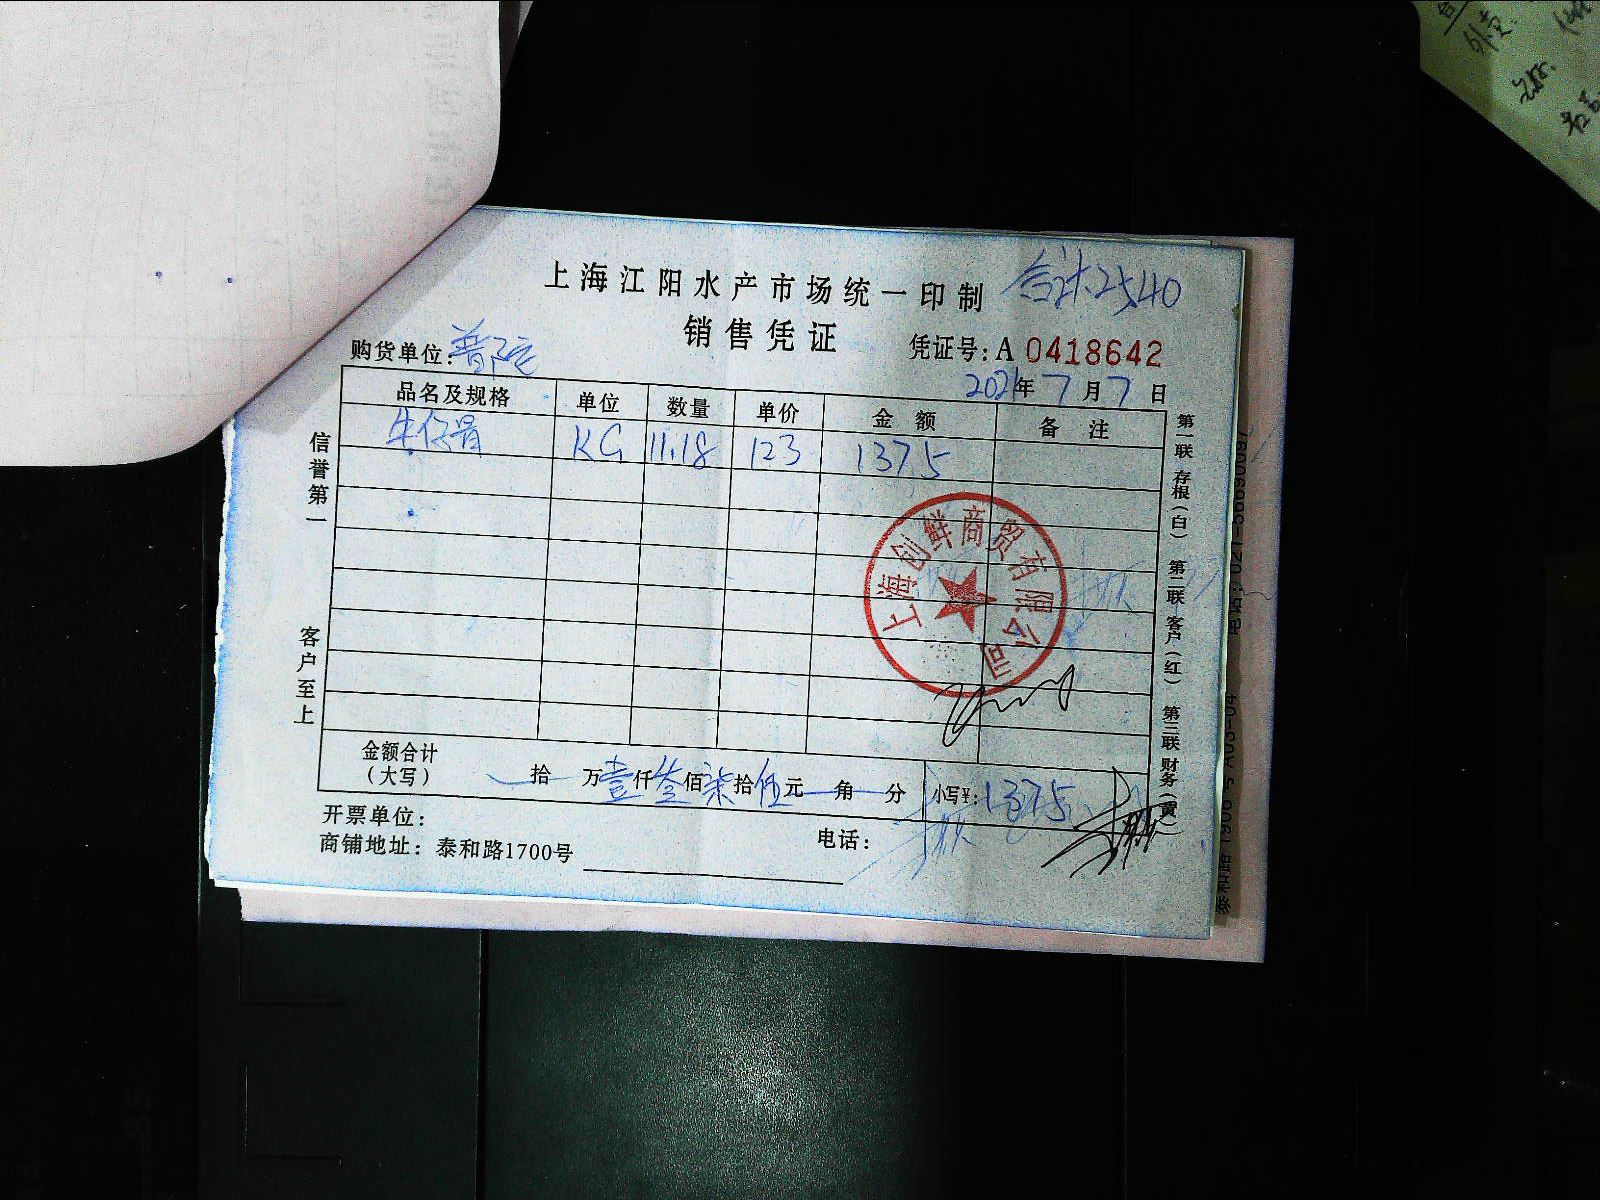 上海江阳水产市场统一印制 合计2540
销售凭证
购货单位：普陀 凭证号：A 0418642
2021年7月7日
品名及规格 单位 数量 单价 金额 备注
牛仔骨 KG 11.18 123 1375
信誉第一
客户至上
第一联 存根（白） 第二联 客户（红） 第三联 财务（黄）
上海创鲜商贸有限公司
金额合计
（大写） 拾 万壹仟叁佰柒拾伍元 角 分 小写¥：1375
开票单位：
商铺地址：泰和路1700号 电话：